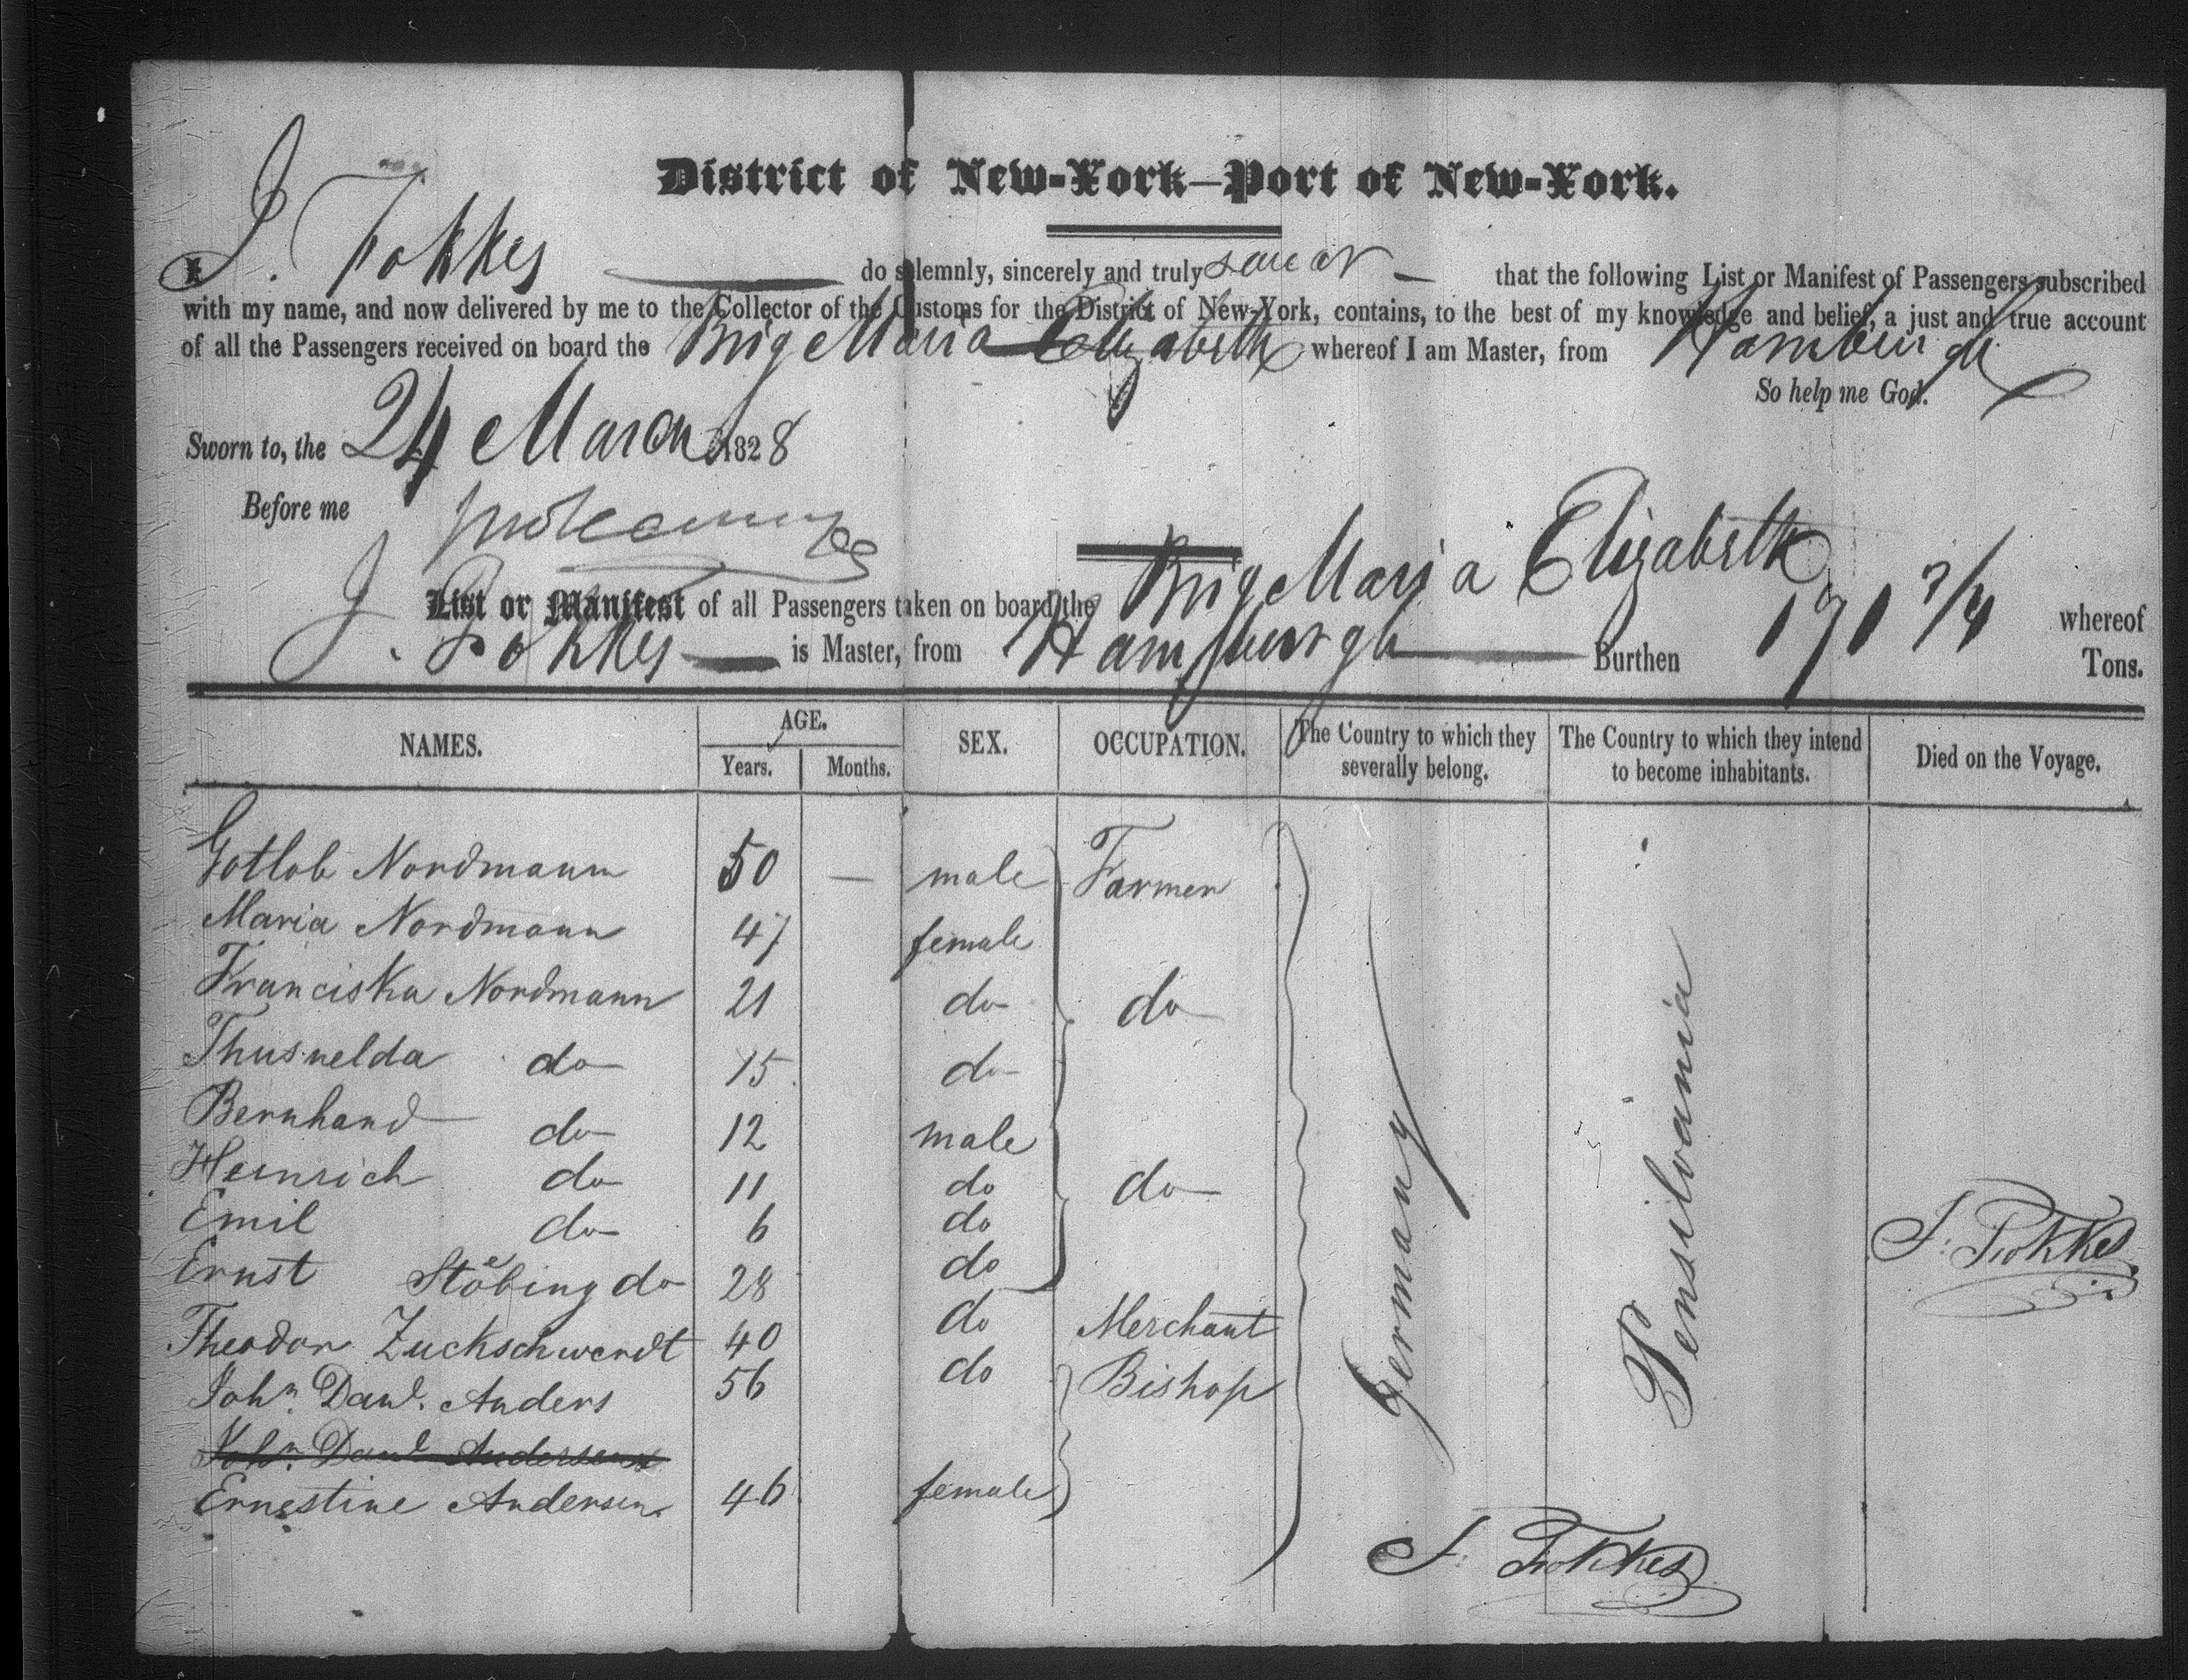 District of New-York—Port of New-York.
I J. Fokkes do solemnly, sincerely and truly swear that the following List or Manifest of Passengers subscribed
with my name, and now delivered by me to the Collector of the Customs for the District of New-York, contains, to the best of my knowledge and belief, a just and true account
of all the Passengers received on board the Brig Maria Elizabeth whereof I am Master, from Hamburgh
So help me God.
Sworn to, the 24 March 1828
Before me
List or Manifest of all Passengers taken on board the Brig Maria Elizabeth whereof
J. Fokkes is Master, from Hamburgh Burthen 171 3/4 Tons.
NAMES. AGE. Years. Months. SEX. OCCUPATION. The Country to which they severally belong. The Country to which they intend to become inhabitants. Died on the Voyage.
Gotlob Nordmann 50 — male Farmer
Maria Nordmann 47 female
Franciska Nordmann 21 do do
Thusnelda do 15 do
Bernhard do 12 male
Heinrich do 11 do do
Emil do 6 do
Ernst Stöbing do 28 do
Theodor Zuckschwerdt 40 do Merchant
Joh.n Danl. Anders 56 do Bishop
Joh.n Danl Andersen
Ernestine Andersen 46 female
Germany
Pensilvania
J. Fokkes
J. Fokkes